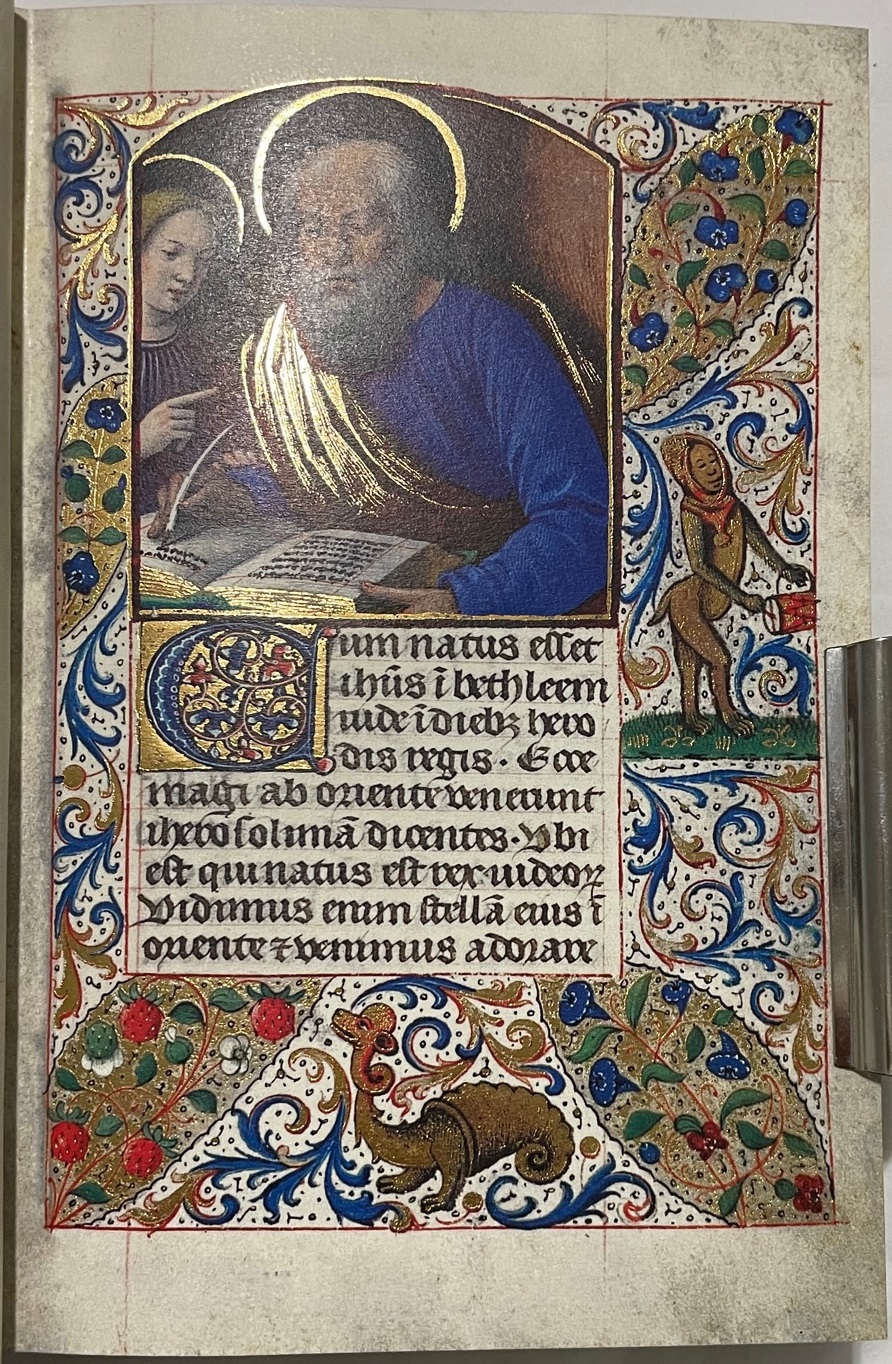 Cum natus esset
ihūs ī bethleem
iude ī diebꝫ hero
dis regis. Ecce
magi ab oriente venerunt
iherosolimā dicentes. Vbi
est qui natus est rex iudeoꝝ
Vidimus enim stellā eius ī
oriente ⁊ venimus adorare